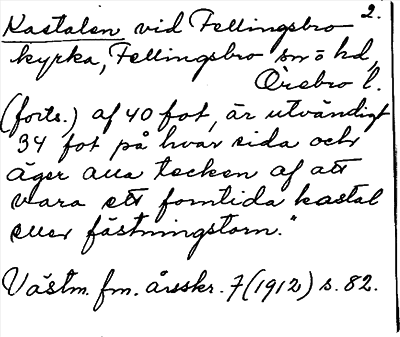 2.
Kastalen vid Fellingsbro
kyrka, Fellingsbro sn ö hd,
Örebro l.
(forts.) af 40 fot, är utvändigt
34 fot på hvar sida och
äger alla tecken af att
vara ett forntida kastal
eller fästningstorn."
Västm. fm. årsskr. 7 (1912) s. 82.